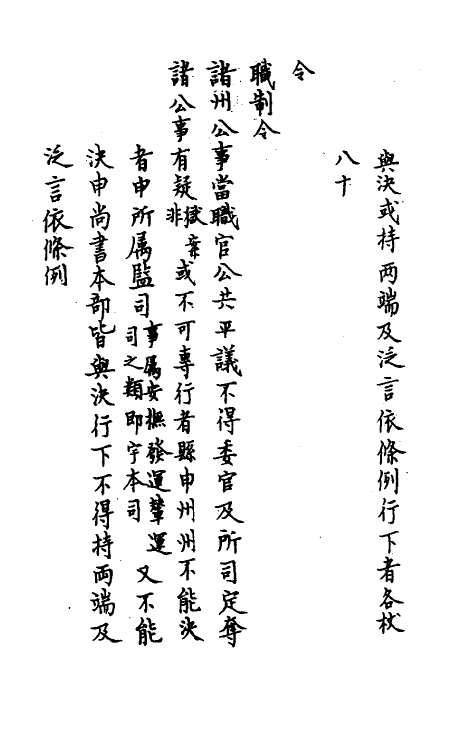 與決或持两端及泛言依條例行下者各杖
八十
令
職制令
諸州公事當職官公共平議不得委官及所司定奪
諸公事有疑非獄案或不可專行者縣申州州不能決
者申所属監司事属安撫發運輦運司之類即宇本司又不能
決申尚書本部皆與決行下不得持两端及
泛言依條例